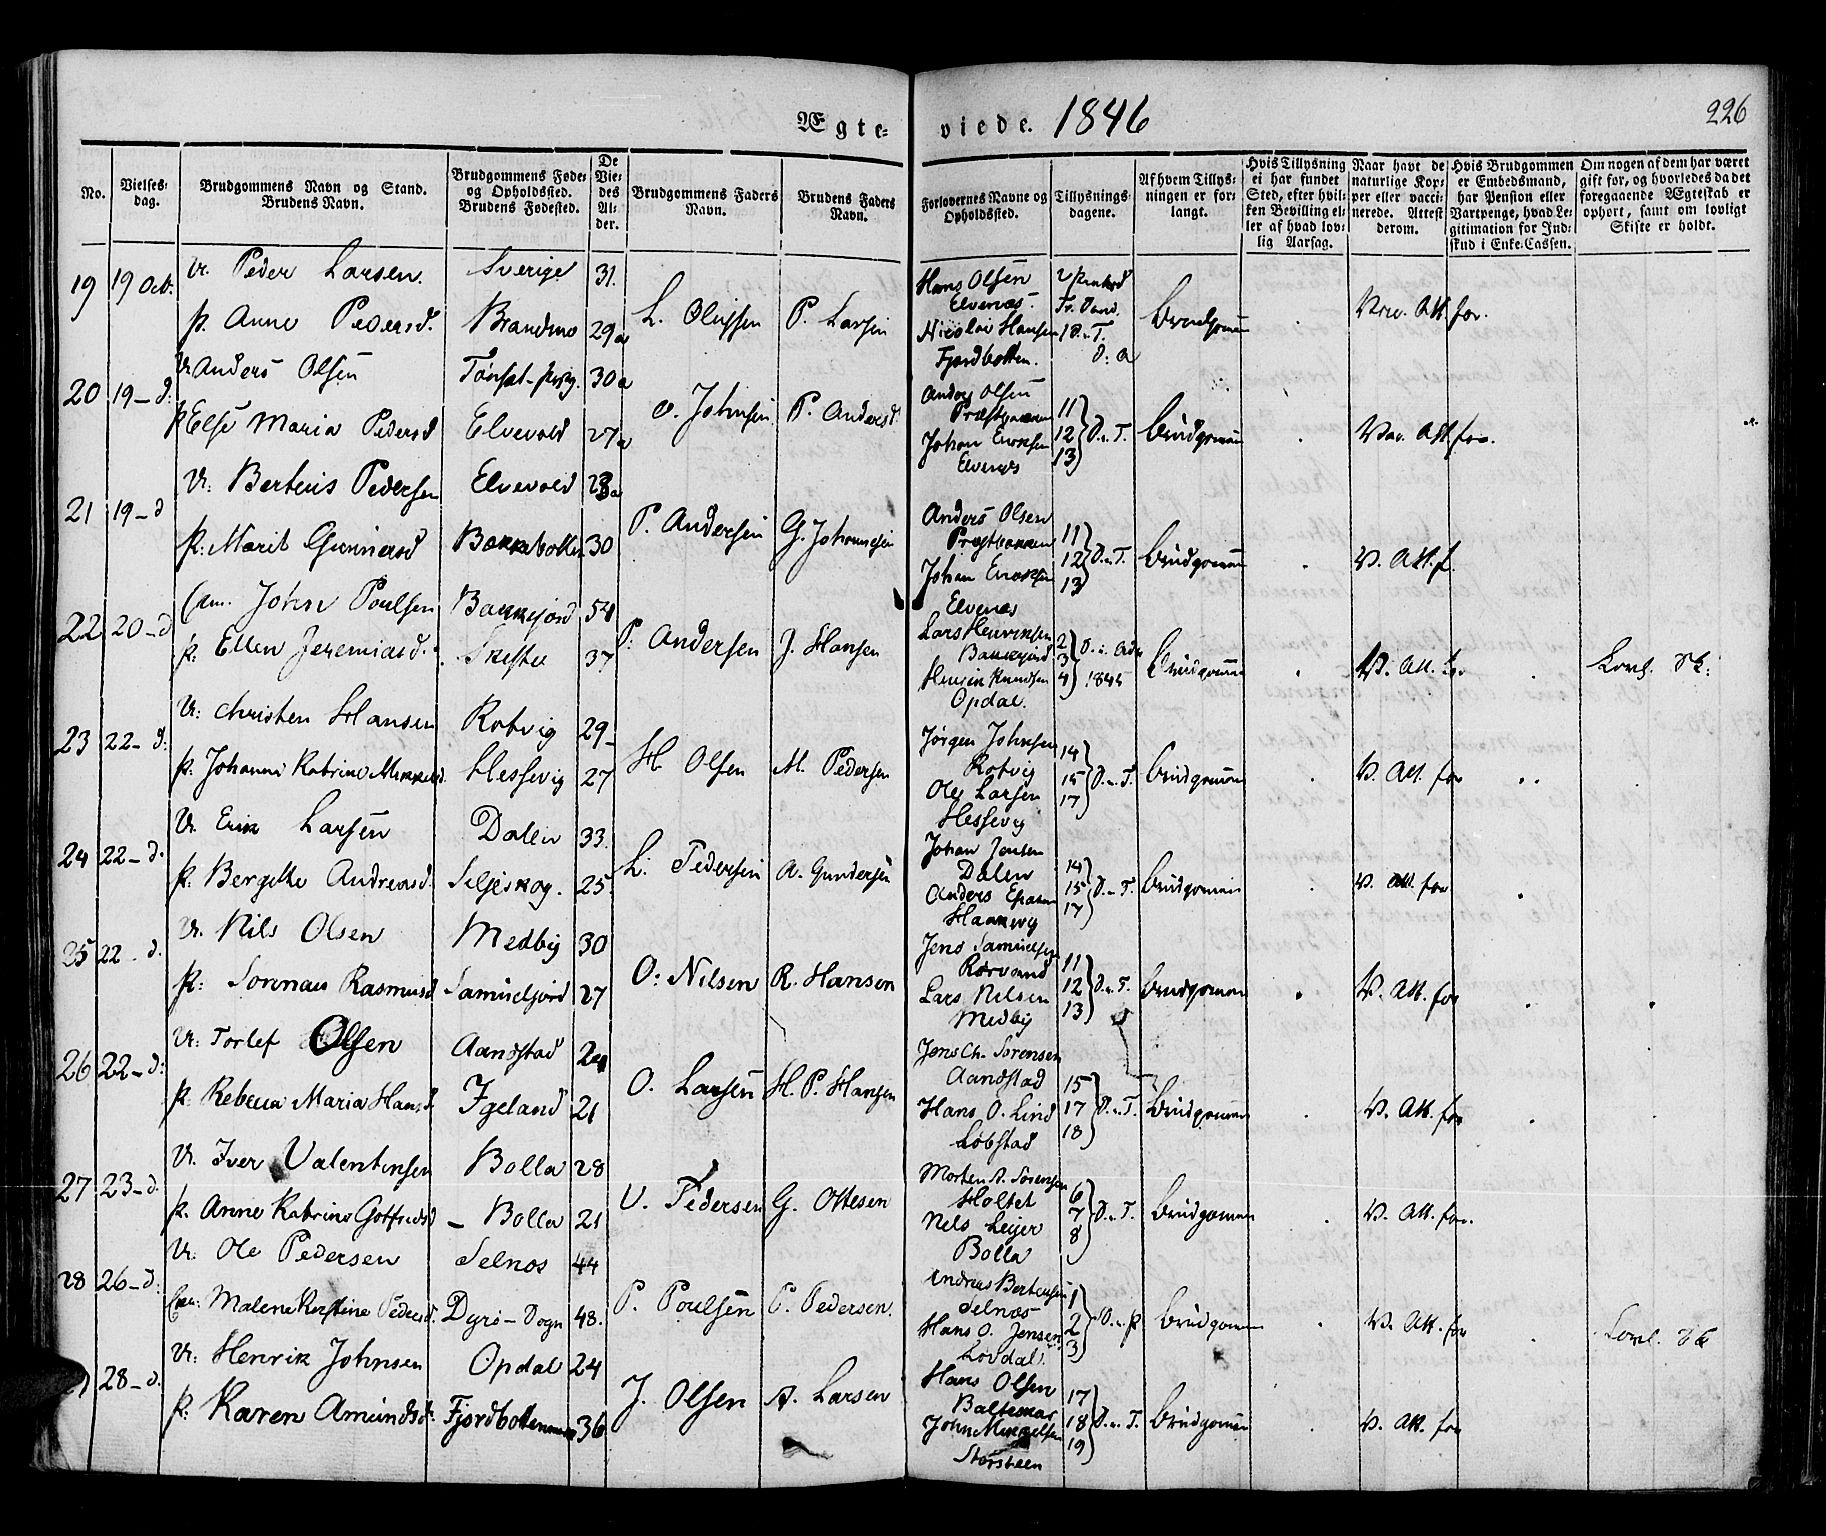 Ægte- viede. 1846
226
No.
Vielses-
dag.
Brudgommens Navn og Stand.
Brudens Navn.
Brudgommens Føde-
og Opholdssted.
Brudens Fødested.
De
Vie-
des
Al-
der.
Brudgommens Faders
Navn.
Brudens Faders
Navn.
Forlovernes Navne og
Opholdssted.
Tillysnings-
dagene.
Af hvem Tillys-
ningen er for-
langt.
Hvis Tillysning
ei har fundet
Sted, efter hvil-
ken Bevilling el-
ler af hvad lov-
lig Aarsag.
Naar havt de
naturlige Kop-
per eller vacci-
nerede. Attest
derom.
Hvis Brudgommen
er Embedsmand,
har Pension eller
Vartpenge, hvad Le-
gitimation for Ind-
skud i Enke-Cassen.
Om nogen af dem har været
gift før, og hvorledes da det
foregaaende Ægteskab er
ophørt, samt om lovligt
Skifte er holdt.
19 19 Oct. U. Peder Larsen. Sverige 31. L. Olufsen P. Larsen Hans Olsen
Elvenæs.
p. Anne Pedersd. 29 Nicolai Hansen
Fjordbotten. D. u. T. Brudgommen Vac. Att. for.
20 19 - d: U Anders Olsen 30 O. Johnsen P. Anders Anders Olsen
p Else Maria Pedersd Elvevold 27 Johan Eriksen
Elvenæs 11 12 13 D. u. T. Brudgommen Vac. Att. for.
21 19 - d U: Bertius Pedersen Elvevold P. Andersen G. Johannesen Anders Olsen
p: Marit Gunnersd Bakkebotten 30 Johan Eriksen
Elvenæs 11 12 13 D. u. T. Brudgommen V. Att. f.
22 20 - d Em. John Poulsen Bakkejord 54 P. Andersen J. Hansen Lars Henriksen
Bakkejord
p: Ellen Jeremiasd. 37 Henrik Knudsen
Opdal. 2 3 4 1845 Brudgommen V. Att. for. Lovl. Sk:
23 22 - d: U: Christen Hansen Rotvig 29 - H Olsen M. Pedersen Jørgen Johnsen
Rotvig
p. Johanne Katrine Mikkelsd. Hessevig 27 Ole Larsen
Hessevig 14 15 17 D. u. T. Brudgommen V. Att. for
24 22 - d. U. Erik Larsen Dalen 33. L: Pedersen A. Gundersen Johan Jensen
Dalen
p: Bergithe Andreasd. Seljeskog. 25. Anders
14 15 17 D. u. T. Brudgommen V. Att. for
25 22 - d. U. Nils Olsen Medby 30 O: Nilsen R. Hansen Jens Samuelsen
p: Rasmusd Samuelsjord 27 Lars Nilsen
Medby 11 12 13 D. u. T. Brudgommen V. Att. for
26 22 - d: U: Torlef Olsen Aanstad 24 O. Larsen H. P. Hansen Jens Ch. Sørensen
Aanstad
p. Rebecca Maria Hansd Igeland 21 Hans O. Lind
Løbstad 15 17 18 D. u. T. Brudgommen V. Att. for
27 23 - d. U. Iver Valentinsen Bolla 28 V. Pedersen G. Ottesen Morten A. Sørensen
Holtet
p. Anne Katrine Gotfredsd - Bolla 21 Nels Lejer
Bolla 6 7 8 D. u. T. Brudgommen V. Att. for.
28 26 - d: U. Ole Pedersen Selnæs 44 P. Poulsen P. Pedersen. Andreas Bertheusen
Selnæs
Em: Malene Kirstine Pedersd. Dyrø - Sogn 48. Hans O. Jensen
Løvdal. 1 2 3 D. u. p Brudgommen V. Att. for Lovl. Sk
28 - d. U: Henrik Johnsen Opdal 24 J. Olsen A. Larsen Hans Olsen
p: Karen Amundsd. Fjordbotten 36 John Mikkelsen
Storsteen 17 18 19 D. u. T. Brudgommen V. Att. for